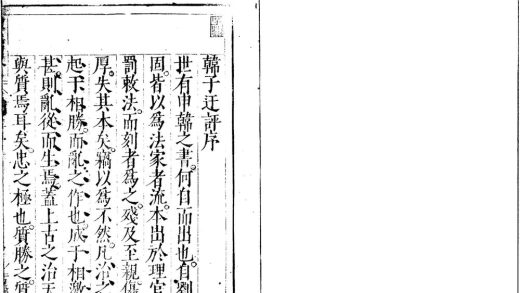 韓子迂評序
世有申韓之書何自而出也自劉
固皆以爲法家者流本出於理官
罰敕法而刻者爲之殘及至親傷
厚失其本矣竊以爲不然凡治之
起于相勝而亂之作也成于相激
甚則亂從而生焉蓋上古之治天
與質焉耳矣忠之極也質勝之